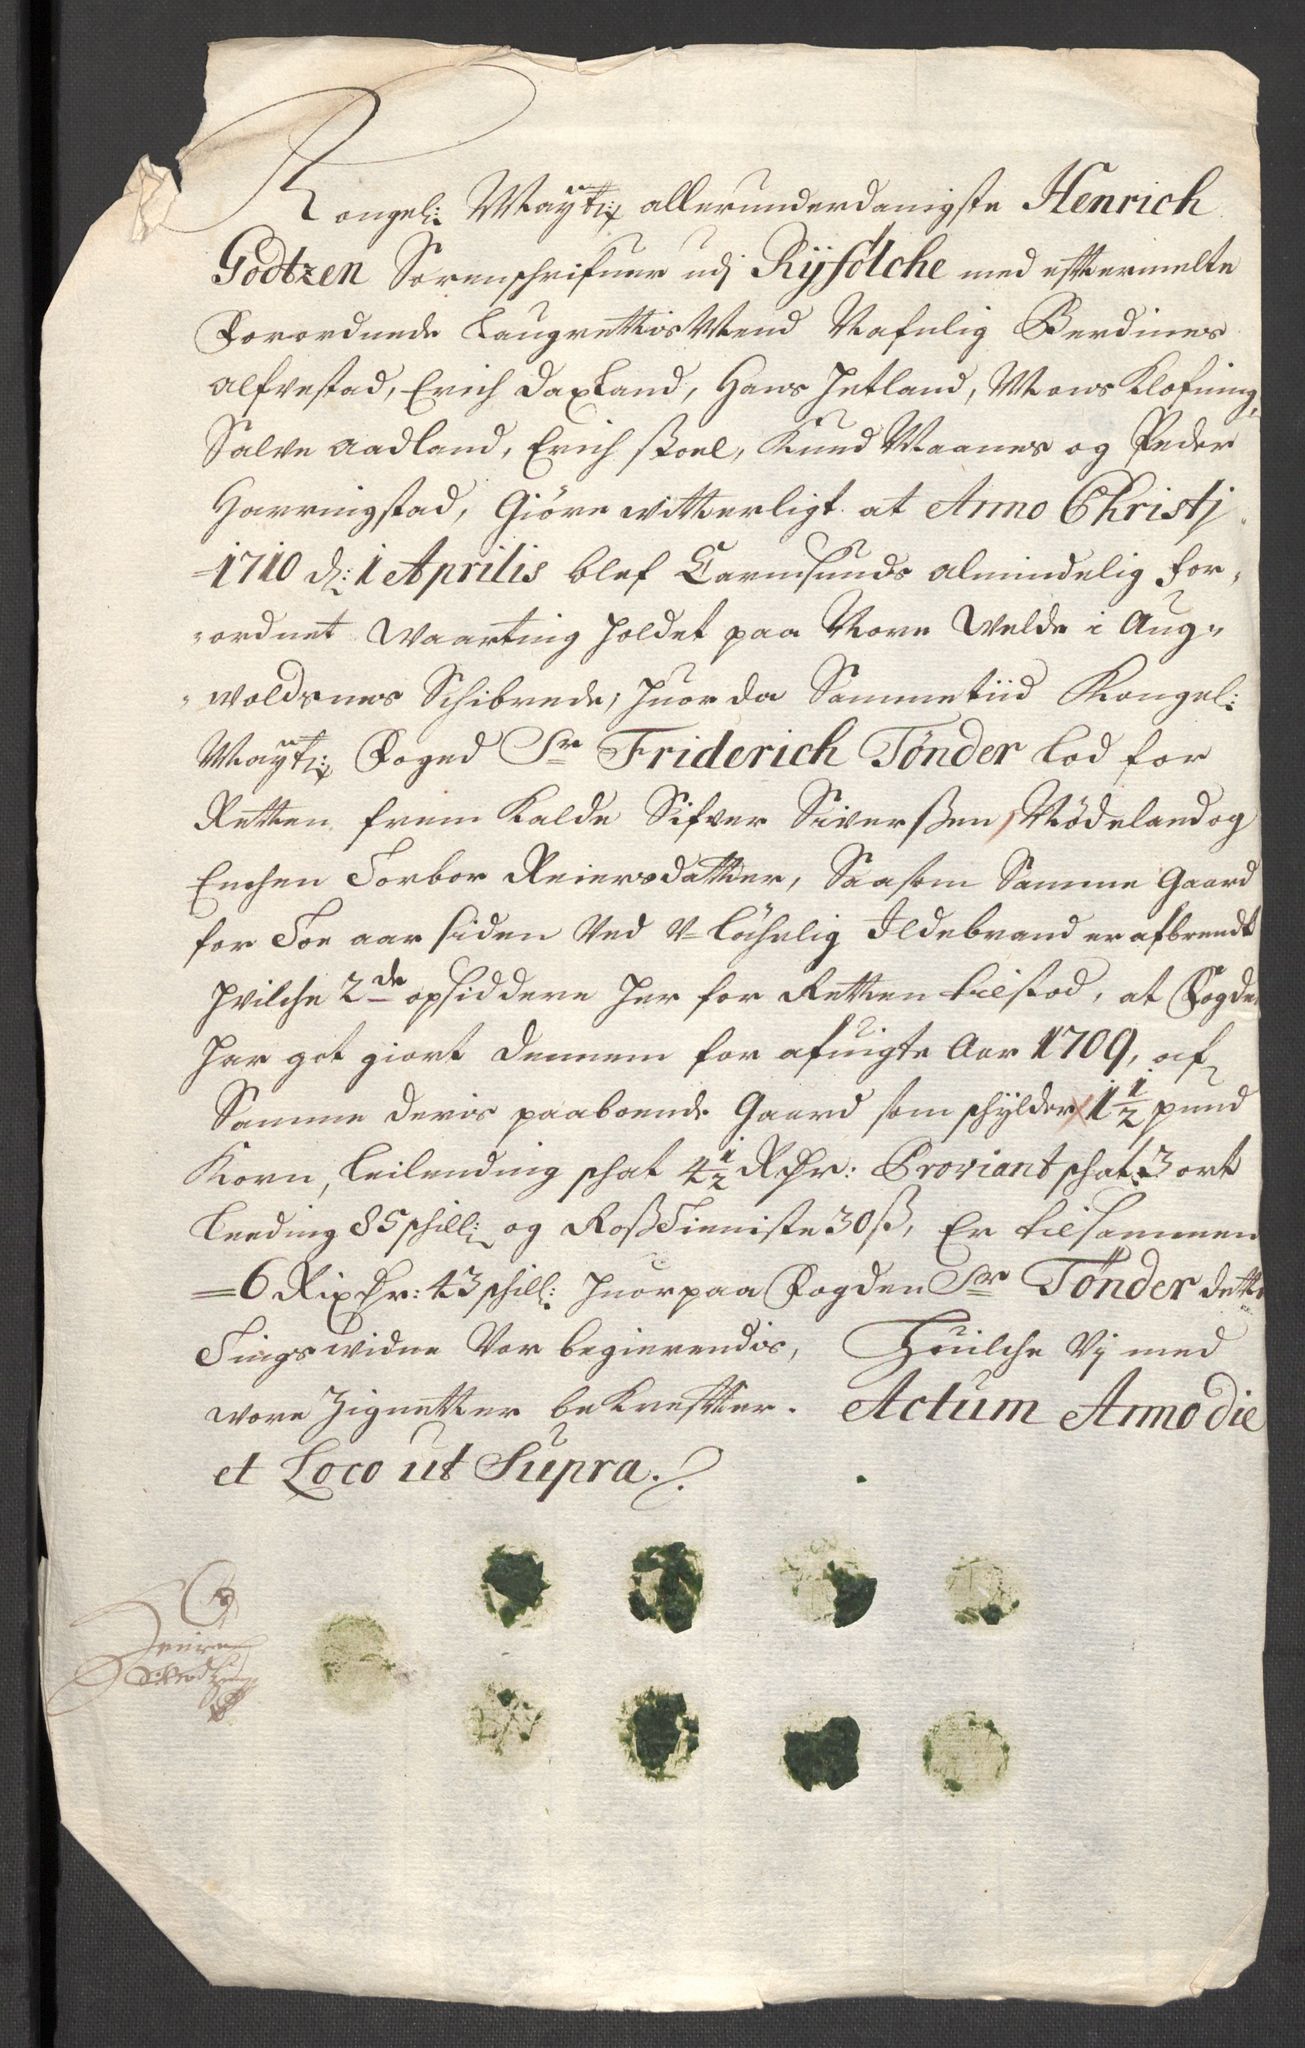 Kongel: Mayts: allerunderdanigste Henrich
Godtzen Sorenschrifuer udj Ryfölche med efftermelte
Forordnede LaugrettisMend Nafnlig Berdines
Alfvestad, Erich Daxland, Hans Jetland, Mons Klofning,
Salve Aadland, Erich skoel, Knud Maanes og Peder
Harringstad, Giöre witterligt at Anno Christj
=1710 d: 1 Aprilis blef Carmsunds almindelig for=
=ordnet waarting holdet paa Nore welde i Aug=
=woldsnes Schibrede, huor da Sammetiid Kongel:
Mayts: Foged Sr Friderich Tönder lod for
Retten frem Kalde Sifver Siverßen Mödeland og
Enchen Torbor Reiersdatter, Saasom Samme Gaard
for Toe aar siden Ved V=lychelig Ildebrand er afbrendt
hvilche 2de opsiddere her for Retten tilstod, at Fogden
har got giort dennem for afuigte Aar 1709, af
Samme deris paaboende Gaard som schylder 1 1/2 pund
Korn, Leilending schat 4 1/2 Rdr: Proviant schat 3 ort
Leeding 85 schill: og RoßTieniste 30 ß, Er tilsammen
=6 Rixdr: 43 schill: huorpaa Fogden Sr Tönder dette
Tingswidne Var begierendis, Huilche Vj med
wore Zignetter bekreffter. Actum Anno die
et Loco ut Supra.